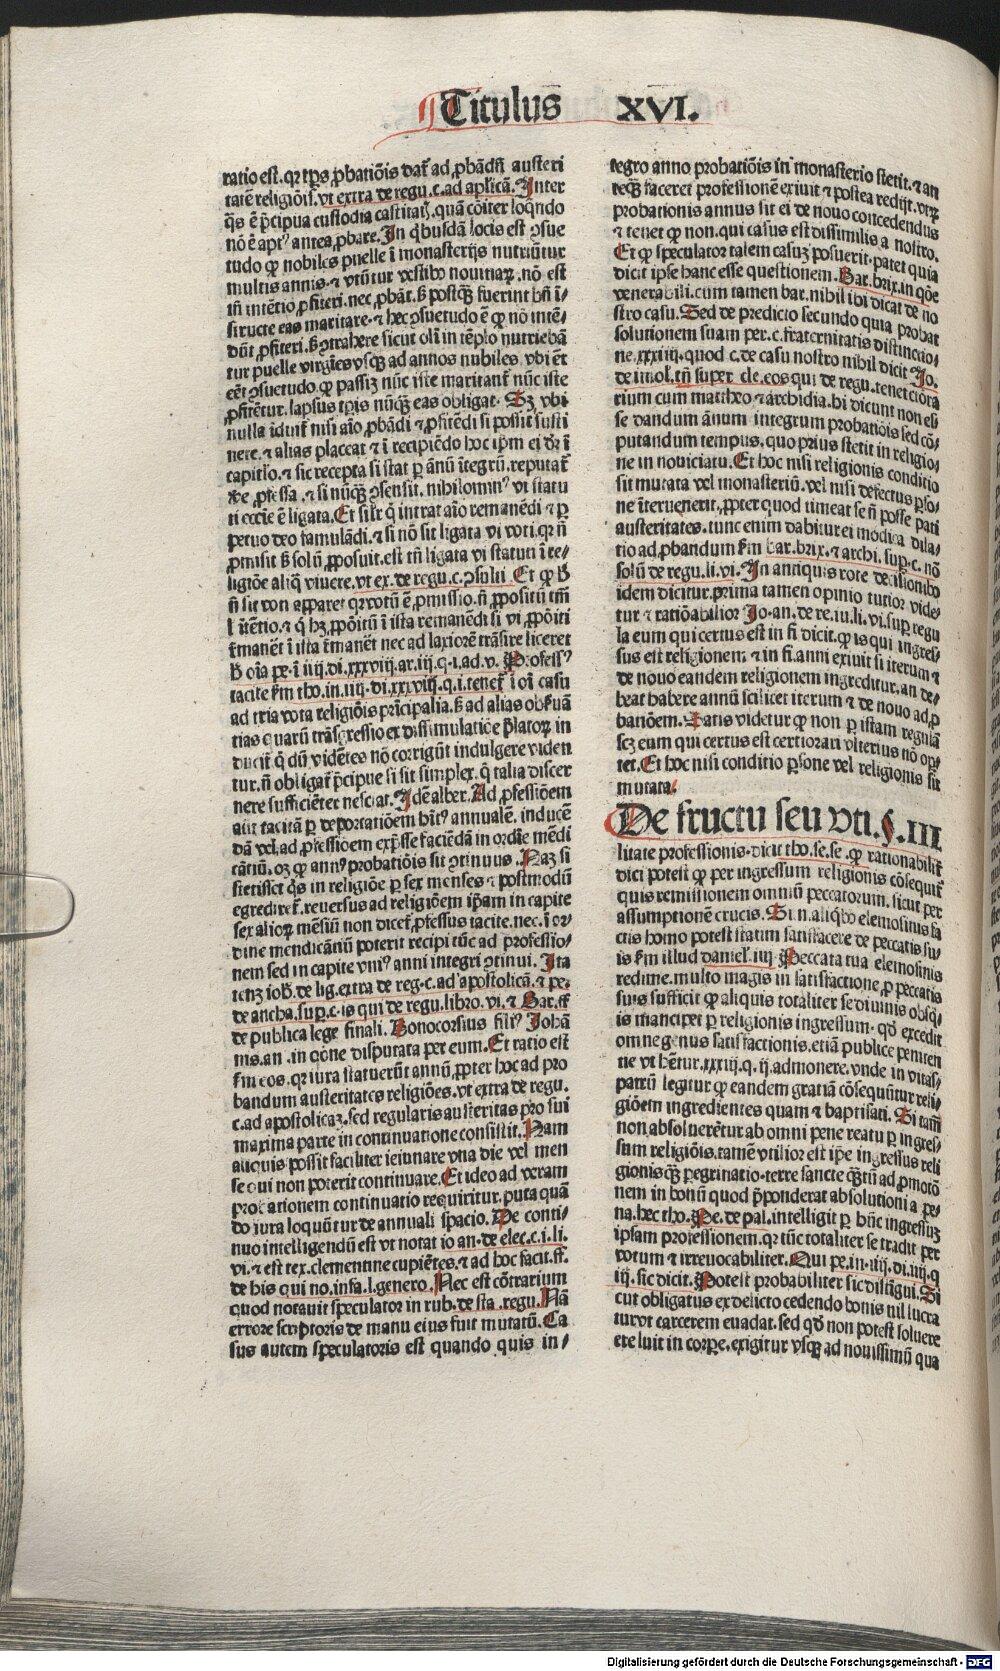 Titulus XVI.
ratio est. qr tp̄s ꝓbatiōis dat̄ ad ꝓbādū austeri
tatē religiōis. vt extra de regu. c. ad aplicā. Inter
q̄s ē p̄cipua custodia castitatꝭ. quā cōiter loq̄ndo
nō ē aptꝰ antea ꝓbare. In q̇busdā locis est ꝯsue
tudo ꝙ nobiles puelle ī monasterijs nutriūtur
multis annis. ⁊ vtūtur vestibꝰ nouitiaꝝ. nō est
tn̄ intētio ꝓfiteri. nec ꝓbāt. ß postqꝫ fuerint bn̄ ī⸗
structe eas maritare. ⁊ hec ꝯsuetudo ē ꝙ nō intē⸗
dūt ꝓfiteri. ß ꝯtrahere sicut olī in tēplo nutriebā
tur puelle virgīes vsqꝫ ad annos nubiles. vbi ēt
eēt ꝯsuetudo ꝙ passiꝫ nūc iste maritant̄ nūc iste
ꝓfitētur. lapsus tp̄is nūqꝫ eas obligat. Sꝫ vbi
nulla īduit̄ nisi aīo ꝓbādi ⁊ ꝓfitēdi si possit susti
nere. ⁊ alias placeat ⁊ ī recipiēdo hoc ip̄m ei dr̄ ī
capitlo. ⁊ sic recepta si stat ꝑ ānū ītegrū. reputat̄
ꝟe ꝓfessa. ⁊ si nūqꝫ ꝯsensit. nihilominꝰ vi statu
ti eccīe ē ligata. Et silr̄ q̇ intrat aīo remanēdi ⁊ ꝑ
petuo deo famulādi. ⁊ si nō sit ligata vi voti. qr n̄
ꝓmisit ß solū ꝓposuit. est tn̄ ligata vi statuti ī re⸗
ligiōe aliq̄ viuere. vt ex. de regu. c. ꝯsulti. Et ꝙ ß
n̄ sit votū apparet qr votū ē ꝓmissio. n̄ ꝓpositū tm̄
l̄ itētio. ⁊ q̇ hꝫ ꝓpōitū ī ista remanēdi si vi ꝓpōiti
r̄manēt ī ista r̄manēt nec ad laxiorē trāsire liceret
ß oīa pe. ī iiij. di. xxxviij. ar. iij. q. i. ad. v. Professꝰ
tacite ẜm tho. in. iiij. di. xxxviij. q. i. tenet̄ ī oī casu
ad tria vota religiōis prīcipalia. ß ad alias obẜuā
tias quarū trāsgressio ex dissimulatiōe p̄latoꝝ in
ducit̄ q̇ dū vidētes nō corrigūt indulgere viden
tur. n̄ obligat̄ p̄cipue si sit simplex. q̇ talia discer
nere sufficiēter nesciat. Idē alber. Ad ꝓfessiōem
aūt tacitā ꝑ deportatiōem hitꝰ annualē. inducē
dā vel ad ꝓfessiōem exp̄sse faciēdā in ordīe mēdi
cātiū. oꝫ ꝙ annꝰ probatiōis sit ꝯtinuus. Naꝫ si
stetisset q̄s in religiōe ꝑ sex menses ⁊ postmodū
egrediret̄. reuersus ad religiōem ip̄am in capite
sex alioꝝ mēsiū non dicet̄ ꝓfessus tacite. nec. ī or⸗
dine mendicātiū poterit recipi tūc ad professio⸗
nem sed in capite vniꝰ anni integri ꝯtinui. Ita
tenꝫ ioh̄. de lig. extra de reg. c. ad apostolicā. ⁊ pe.
de ancha. suꝑ. c. is qui de regu. libro. vi. ⁊ Bar. ff
de publica lege finali. Bonocorsius filiꝰ Johā
nis. an. in q̄one disputata per eum. Et ratio est
ẜm eos. qr iura statuerūt annū ꝓpter hoc ad pro
bandum austeritates religiōes. vt extra de regu.
c. ad apostolicaꝫ. sed regularis austeritas pro sui
maxima parte in continuatione consistit. Nam
aliquis possit faciliter ieiunare vna die vel men
se qui non poterit continuare. Et ideo ad veram
probationem continuatio requiritur. puta quā
do iura loquūtur de annuali spacio. De conti⸗
nuo intelligendū est vt notat io an. de elec. c. i. li.
vi. ⁊ est tex. clementine cupiētes. ⁊ ad hoc facit. ff.
de his qui no. infa. l. genero. Nec est cōtrarium
quod notauit speculator in rub. de sta. regu. Nā
errore scriptoris de manu eius fuit mutatū. Ca
sus autem speculatoris est quando quis in⸗
tegro anno probatiōis in monasterio stetit. ⁊ an
teqꝫ faceret professionē exiuit ⁊ postea redijt. vtꝝ
probationis annus sit ei de nouo concedendus
⁊ tenet ꝙ non. qui casus est dissimilis a nostro.
Et ꝙ speculator talem casuꝫ posuerit. patet quia
dicit ipse hanc esse questionem. Bar. brix. in qōe
venerabili. cum tamen bar. nihil ibi dicat de no
stro casu. Sed de predicto secundo quia probat
solutionem suam per. c. fraternitatis distinctio⸗
ne. xxxiiij. quod c. de casu nostro nihil dicit Jo.
de imol. tn̄ super cle. eos qui de regu. tenet ꝯtra
rium cum mattheo ⁊ archidia. hi dicunt non es⸗
se dandum ānum integrum probatiōis sed cō⸗
putandum tempus. quo prius stetit in religio⸗
ne in nouiciatu. Et hoc nisi religionis conditio
sit mutata vel monasteriū. vel nisi defectus ꝑso⸗
ne īteruenerit. ꝓpter quod timeat se n̄ posse pati
austeritates. tunc enim dabitur ei modica dila⸗
tio ad ꝓbandum ẜm bar. brix. ⁊ archi. suꝑ. c. nō
solū de regu. li. vi. In antiquis rote decisionibꝰ
idem dicitur. prima tamen opinio tutior vide⸗
tur ⁊ ratiōabilior Jo. an. de re. iu. li. vi. suꝑ regu
la eum qui certus est in fi dicit. ꝙ is qui ingres⸗
sus est religionem. ⁊ in fi. anni exiuit si iterum ⁊
de nouo eandem religionem ingreditur. an de⸗
beat habere annū scilicet iterum ⁊ de nouo ad ꝓ
bationē. Satis videtur ꝙ non ꝑ istam regulā
scꝫ eum qui certus est certiorari vlterius nō opr⸗
tet. Et hoc nisi conditio ꝑsone vel religionis sit
mutata.
De fructu seu vti. §. III
litate professionis. dicit tho. se. se. ꝙ rationabilit̄
dici potest ꝙ per ingressum religionis cōsequit̄
quis remissionem omniū peccatorum. sicut per
assumptionē crucis. Si n. aliqbꝰ elemosinis fa
ctis homo potest statim satisfacere de peccatis su⸗
is ẜm illud daniel. iiij Peccata tua elemosinis
redime. multo magis in satisfactione ꝓ peccatis
suis sufficit ꝙ aliquis totaliter se diuinis obsq⸗
is mancipet ꝑ religionis ingressum. qd̓ excedit
omne genus satisfactionis. etiā publice peniten
tie vt hētur. xxxiij. q. ij. admonere. vnde in vitas⸗
patrū legitur ꝙ eandem gratiā cōsequūtur reli⸗
giōem ingredientes quam ⁊ baptisati. Si tam̄
non absoluerētur ab omni pene reatu ꝑ ingres⸗
sum religiōis. tamē vtilior est ip̄e ingressus reli
gionisqꝫ peregrinatio terre sancte qꝫtū ad ꝓmotō
nem in bonū quod p̄ponderat absolutioni a pe⸗
na. hec tho. Pe. de pal. intelligit ꝑ hūc ingressuꝫ
ipsam professionem. qr tūc totaliter se tradit per
votum ⁊ irreuocabiliter. Qui pe. in. iiij. di. iiij. q
iij. sic dicit. Potest probabiliter sic distīgui. Si
cut obligatus ex delicto cedendo bonis nil lucra
tur vt carcerem euadat. sed qd̓ non potest soluere
ere luit in corꝑe. exigitur vsqꝫ ad nouissimū qua
Digitalisierung gefördert durch die Deutsche Forschungsgemeinschaft - DFG